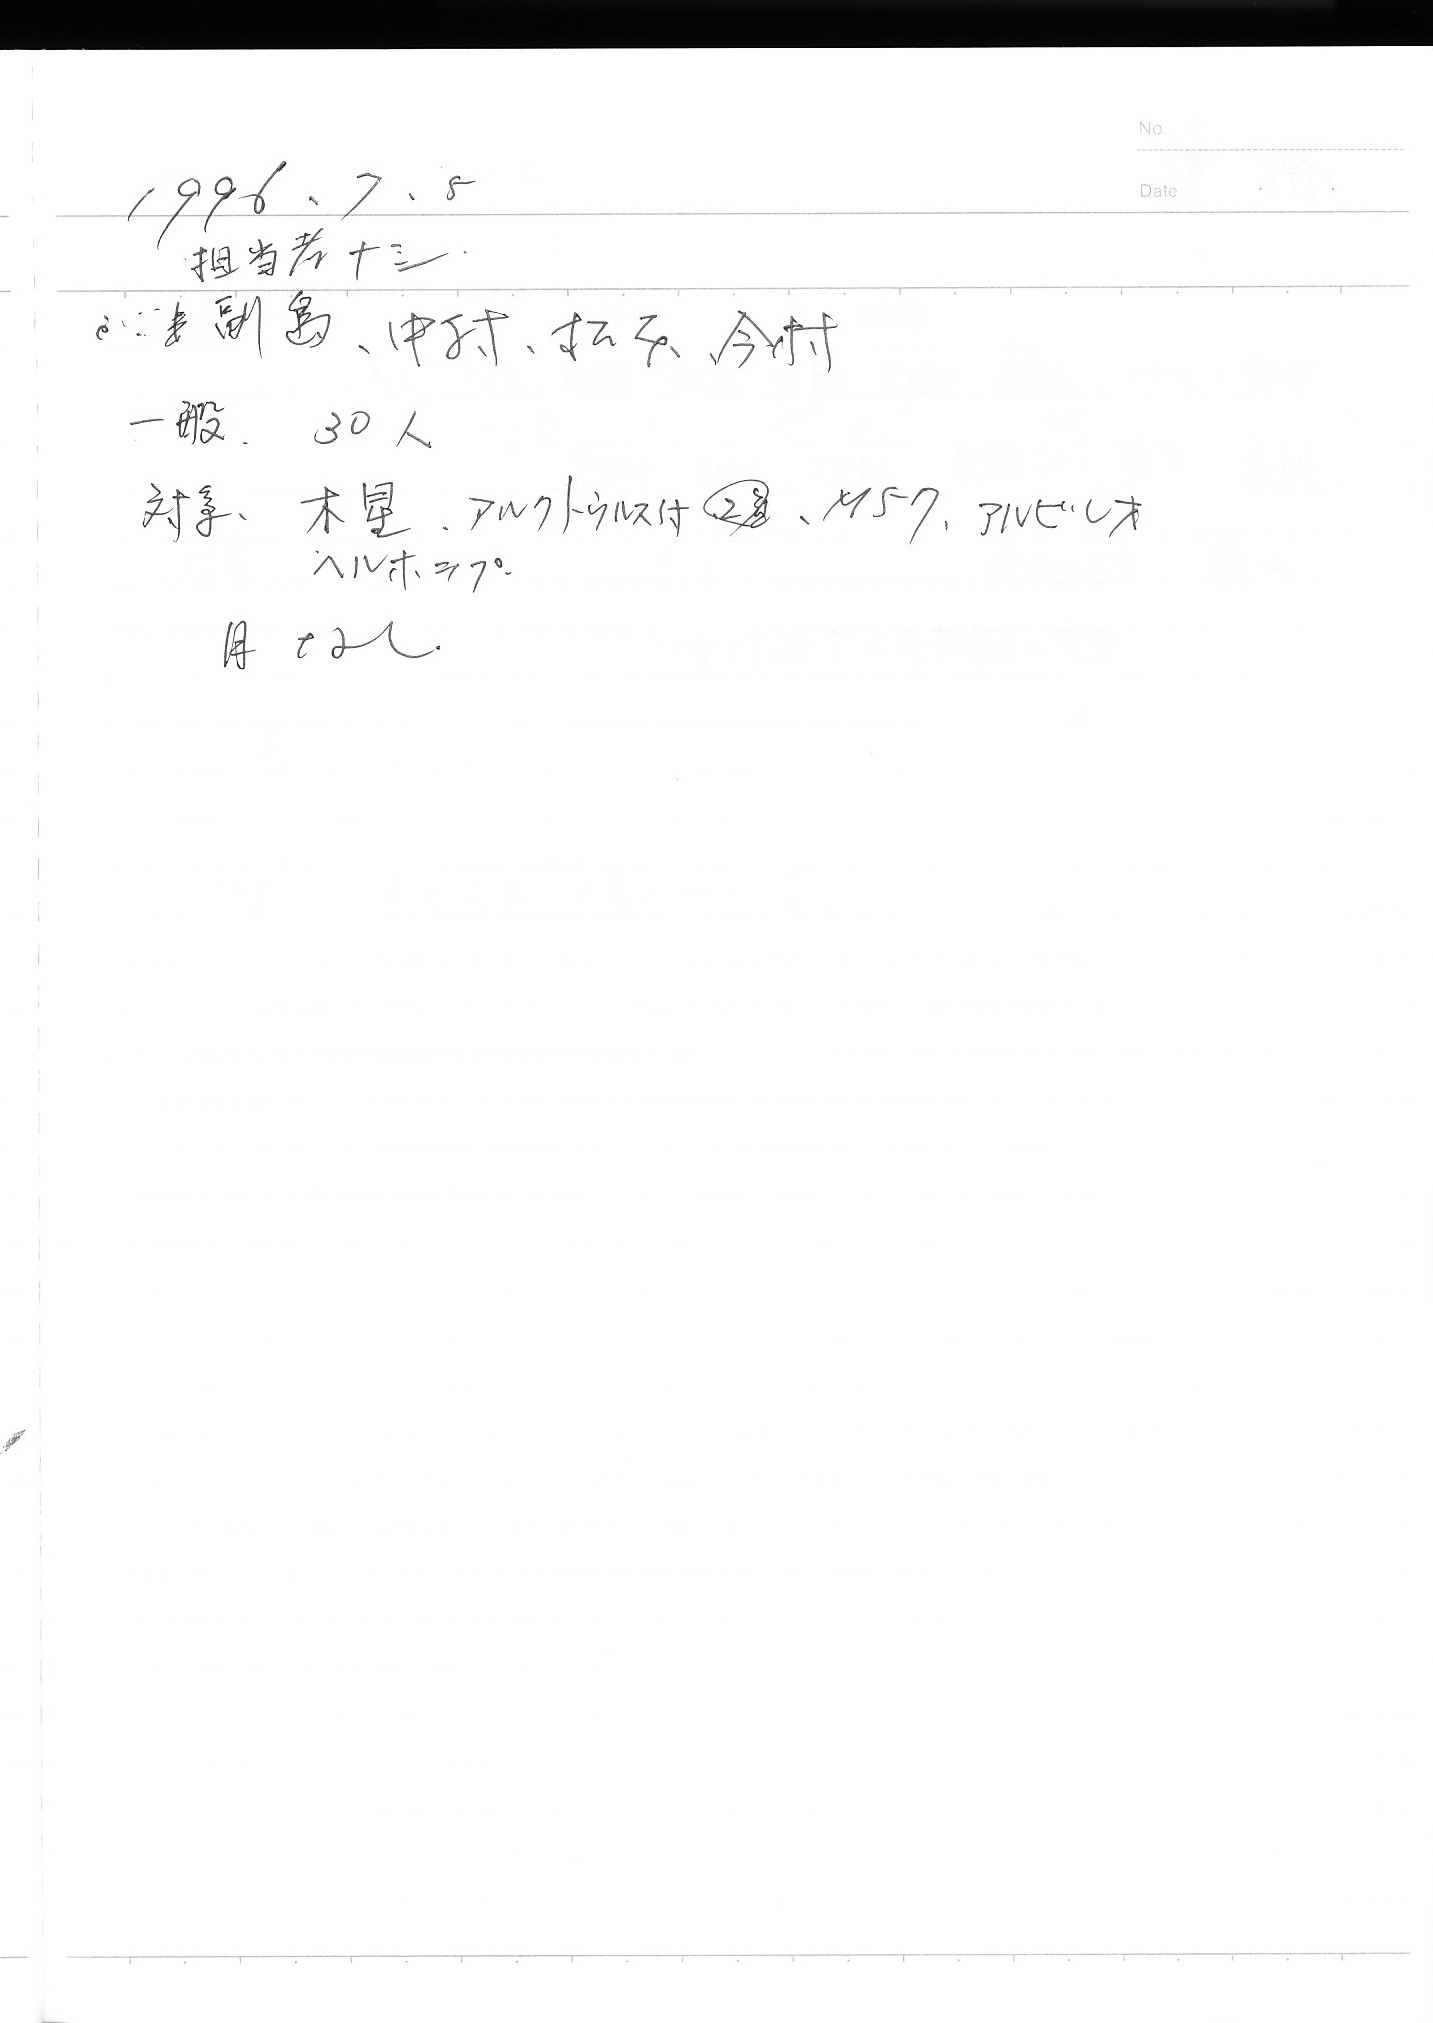 No.
Date
1996、7、5
担当者ナシ.
副島、中村、松本、今村
一般. 30人
対象、木星、アルクトゥルス付、M57、アルビレオ
ヘルホップ.
月 なし.